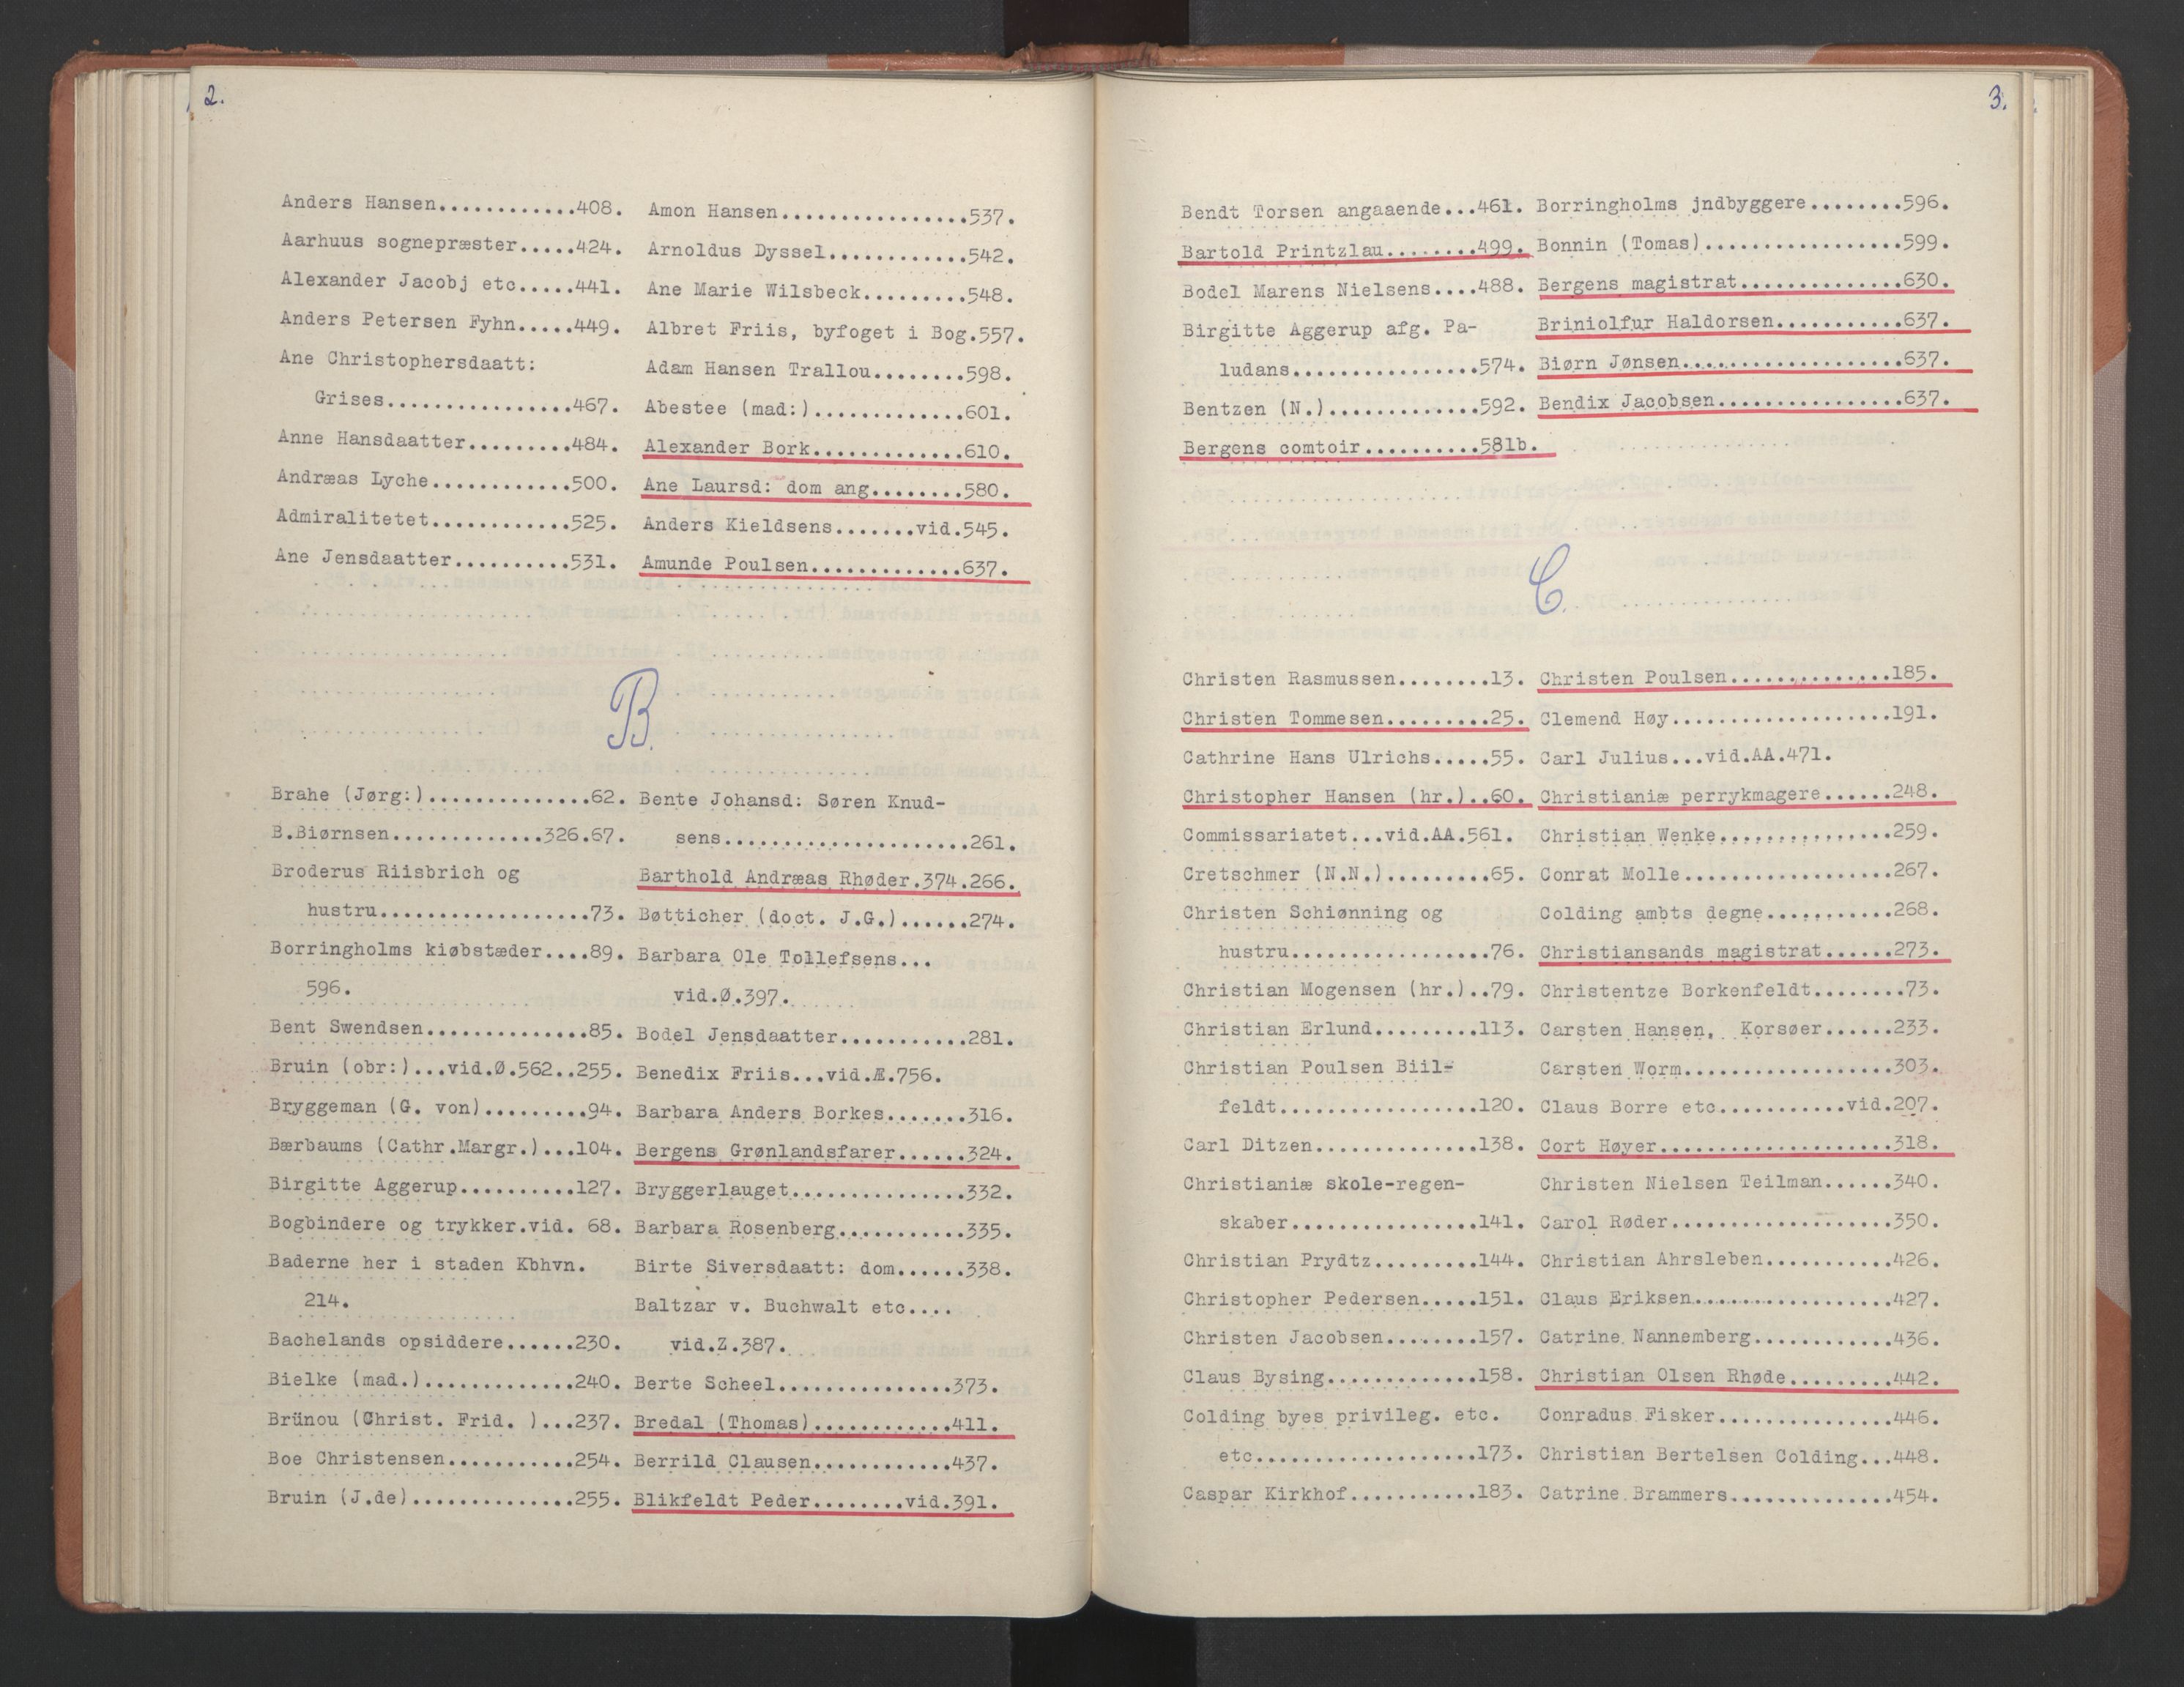 2.
Anders Hansen............408.
Aarhuus sognepræster.....424.
Alexander Jacobj etc.....441.
Anders Petersen Fyhn.....449.
Ane Christophersdaatt:
Grises................467.
Anne Hansdaatter.........484.
Andræas Lyche............500.
Admiralitetet............525.
Ane Jensdaatter..........531.
Amon Hansen................537.
Arnoldus Dyssel............542.
Ane Marie Wilsbeck.........548.
Albret Friis, byfoget i Bog.557.
Adam Hansen Trallou........598.
Abestee (mad:).............601.
Alexander Bork.............610.
Ane Laursd: dom ang........580.
Anders Kieldsens.......vid.545.
Amunde Poulsen.............637.
B.
Brahe (Jørg:)..............62.
B.Biørnsen.............326.67.
Broderus Riisbrich og
hustru..................73.
Borringholms kiøbstæder....89.
596.
Bent Swendsen..............85.
Bruin (obr:)...vid.Ø.562..255.
Bryggeman (G. von).........94.
Bærbaums (Cathr.Margr.)...104.
Birgitte Aggerup..........127.
Bogbindere og trykker.vid. 68.
Baderne her i staden Kbhvn.
214.
Bachelands opsiddere......230.
Bielke (mad.).............240.
Brünou (Christ. Frid. )...237.
Boe Christensen...........254.
Bruin (J.de)..............255.
Bente Johansd: Søren Knud-
sens.....................261.
Barthold Andræas Rhøder.374.266.
Bøtticher (doct. J.G.)......274.
Barbara Ole Tollefsens...
vid.Ø.397.
Bodel Jensdaatter...........281.
Benedix Friis...vid.Æ.756.
Barbara Anders Borkes.......316.
Bergens Grønlandsfarer......324.
Bryggerlauget...............332.
Barbara Rosenberg...........335.
Birte Siversdaatt: dom......338.
Baltzar v. Buchwalt etc....
vid.Z.387.
Berte Scheel...............373.
Bredal (Thomas)............411.
Berrild Clausen............437.
Blikfeldt Peder........vid.391.
3.
Bendt Torsen angaaende...461.
Bartold Printzlau........499.
Bodel Marens Nielsens....488.
Birgitte Aggerup afg. Pa-
ludans................574.
Bentzen (N.).............592.
Bergens comtoir..........581b.
Borringholms jndbyggere........596.
Bonnin (Tomas).................599.
Bergens magistrat..............630.
Briniolfur Haldorsen...........637.
Biørn Jønsen...................637.
Bendix Jacobsen................637.
C.
Christen Rasmussen........13.
Christen Tommesen.........25.
Cathrine Hans Ulrichs.....55.
Christopher Hansen (hr.)..60.
Commissariatet...vid.AA.561.
Cretschmer (N.N.).........65.
Christen Schiønning og
hustru.................76.
Christian Mogensen (hr.)..79.
Christian Erlund.........113.
Christian Poulsen Biil-
feldt.................120.
Carl Ditzen..............138.
Christianiæ skole-regen-
skaber................141.
Christian Prydtz.........144.
Christopher Pedersen.....151.
Christen Jacobsen........157.
Claus Bysing.............158.
Colding byes privileg. etc.
etc...................173.
Caspar Kirkhof...........183.
Christen Poulsen..............185.
Clemend Høy...................191.
Carl Julius...vid.AA.471.
Christianiæ perrykmagere......248.
Christian Wenke...............259.
Conrat Molle..................267.
Colding ambts degne...........268.
Christiansands magistrat......273.
Christentze Borkenfeldt........73.
Carsten Hansen, Korsøer......233.
Carsten Worm..................303.
Claus Borre etc...........vid.207.
Cort Høyer....................318.
Christen Nielsen Teilman......340.
Carol Røder...................350.
Christian Ahrsleben...........426.
Claus Eriksen.................427.
Catrine Nannemberg............436.
Christian Olsen Rhøde.........442.
Conradus Fisker...............446.
Christian Bertelsen Colding...448.
Catrine Brammers..............454.